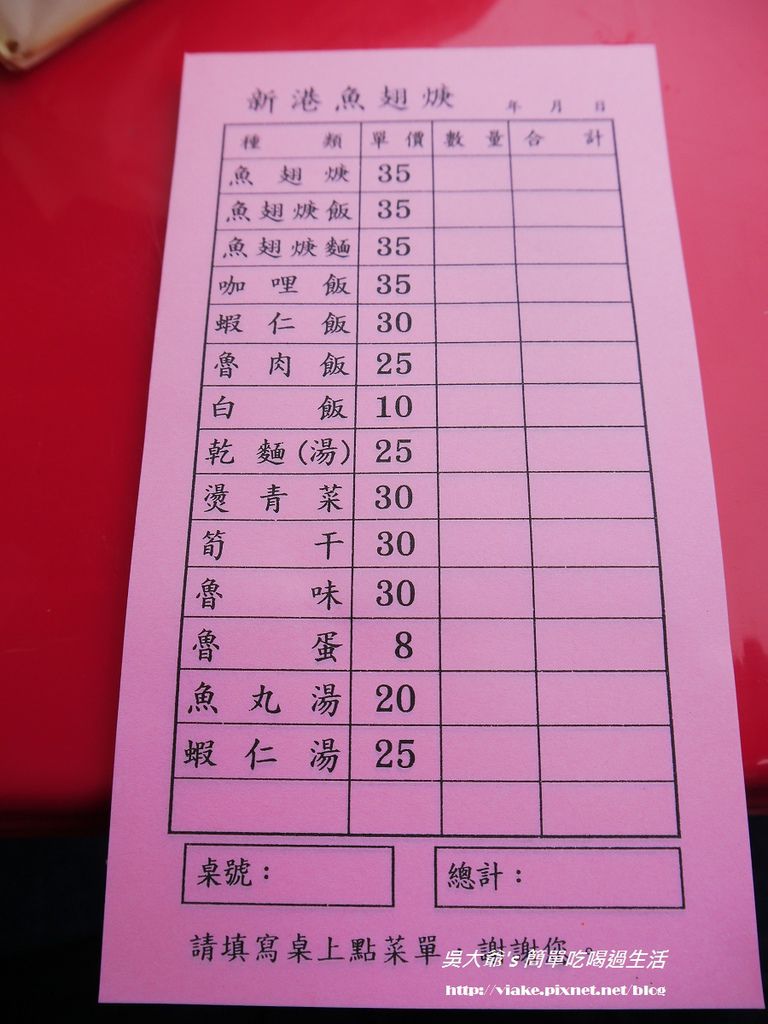 新港魚翅焿
年 月 日
種類 單價 數量 合計
魚翅焿 35
魚翅焿飯 35
魚翅焿麵 35
咖哩飯 35
蝦仁飯 30
魯肉飯 25
白飯 10
乾麵(湯) 25
燙青菜 30
筍干 30
魯味 30
魯蛋 8
魚丸湯 20
蝦仁湯 25
桌號： 總計：
請填寫桌上點菜單，謝謝您。
吳大爺's簡單吃喝過生活
http://viake.pixnet.net/blog